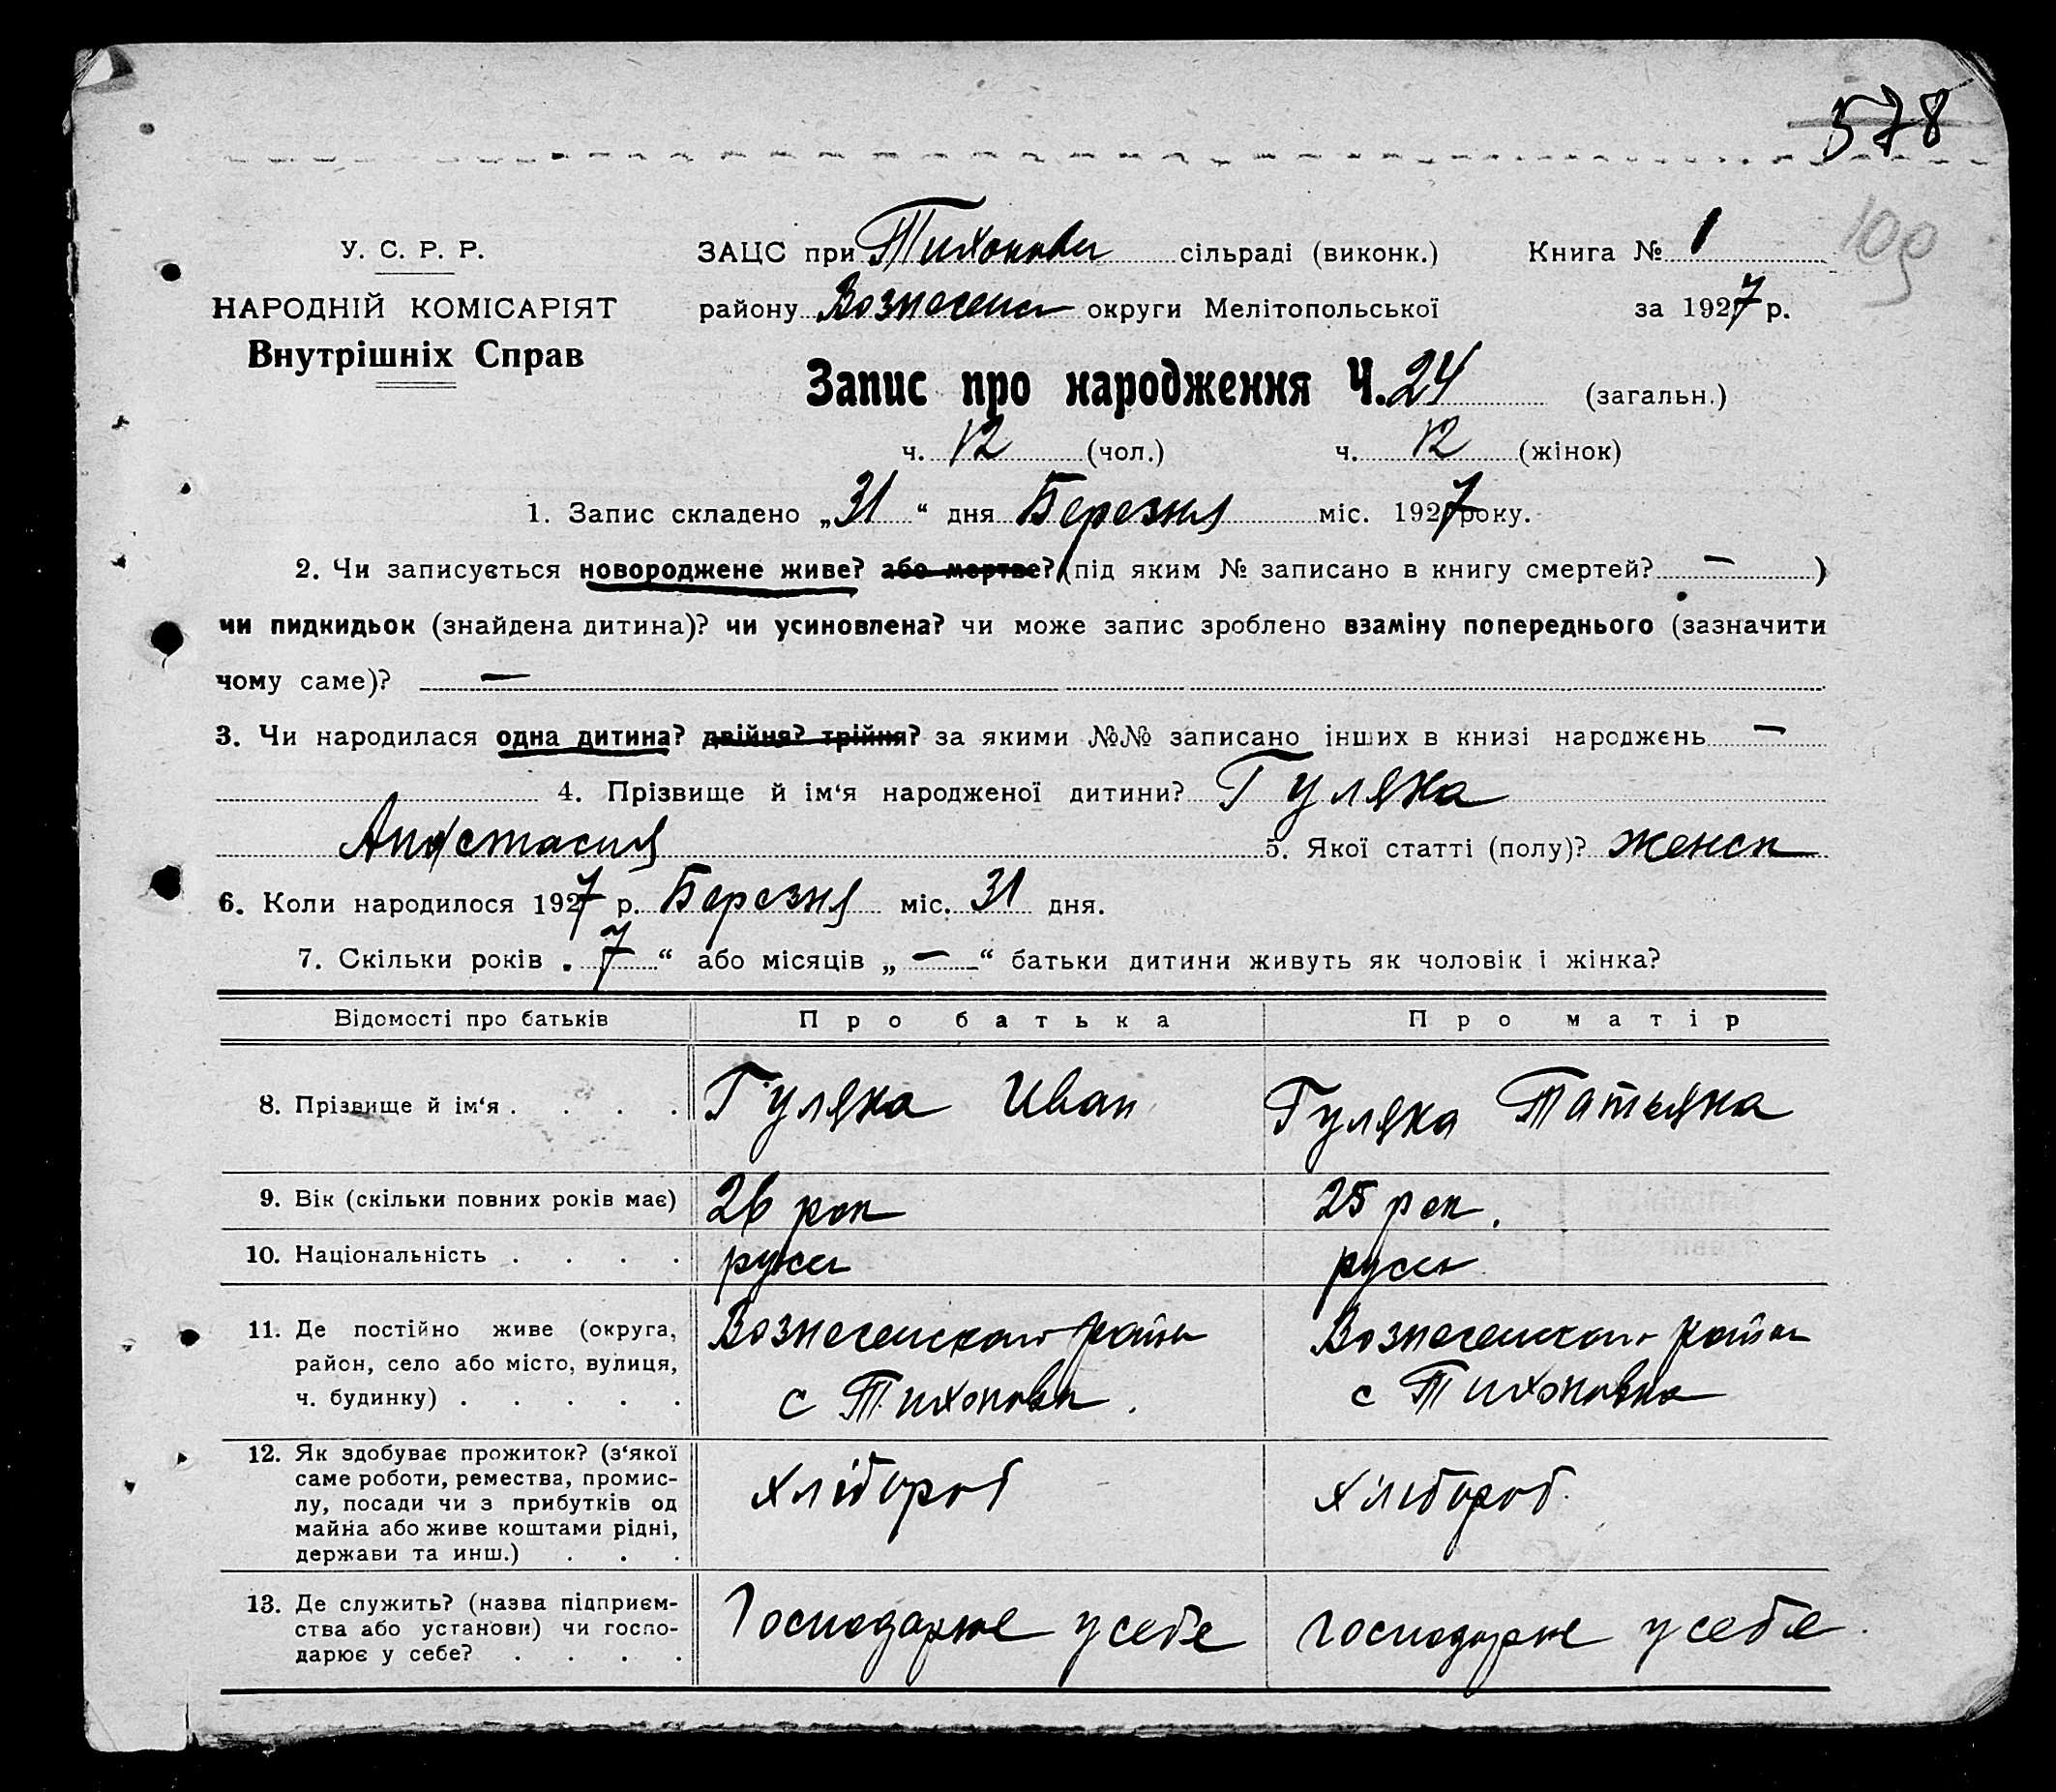 578
109
У. С. Р. Р.
НАРОДНІЙ КОМІСАРІЯТ
Внутрішніх Справ
ЗАЦС при Тихоновск сільраді (виконк.) Книга № 1
району Вознесенск округи Мелітопольської за 1927 р.
Запис про народження Ч. 24 (загальн.)
ч. 12 (чол.) ч. 12 (жінок)
1. Запис складено „31“ дня Березня міс. 1927 року.
2. Чи записується новороджене живе? або мертве? (під яким № записано в книгу смертей? — )
чи пидкидьок (знайдена дитина)? чи усиновлена? чи може запис зроблено взаміну попереднього (зазначити
чому саме)? —
3. Чи народилася одна дитина? двійня? трійня? за якими №№ записано інших в книзі народжень —
4. Прізвище й ім‘я народженої дитини? Гуляка
Анастасия 5. Якої статті (полу)? женск
6. Коли народилося 1927 р. Березня міс. 31 дня.
7. Скільки років „7“ або місяців „—“ батьки дитини живуть як чоловік і жінка?
Відомості про батьків Про батька Про матір
8. Прізвище й ім‘я . . . . Гуляка Иван Гуляка Татьяна
9. Вік (скільки повних років має) 26 рок 25 рок.
10. Національність . . . . руск руск
11. Де постійно живе (округа, Вознесенского район Вознесенского район
район, село або місто, вулиця,
ч. будинку) . . . . . с Тихоновк. с Тихоновка
12. Як здобуває прожиток? (з‘якої
саме роботи, ремества, промис-
лу, посади чи з прибутків од хлібороб хлібороб.
майна або живе коштами рідні,
держави та инш.) . . .
13. Де служить? (назва підприєм-
ства або установи) чи госпо- Господарює у себе господарює у себе.
дарює у себе? . . . .